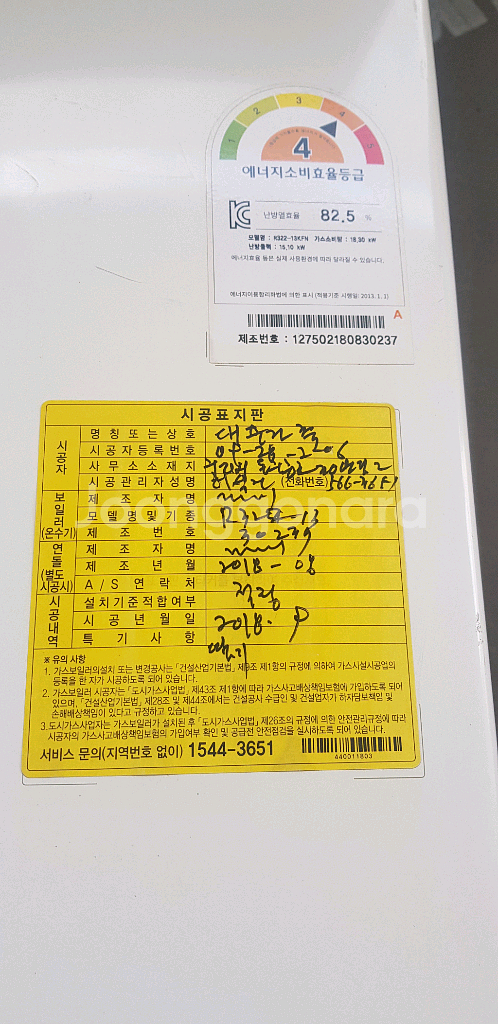 1 2 3 4 5
4
에너지소비효율등급
난방열효율 82.5 %
모델명 : R322-13KFN 가스소비량 : 18.30 kW
난방출력 : 15.10 kW
에너지효율 등은 실제 사용환경에 따라 달라질 수 있습니다.
에너지이용합리화법에 의한 표시 (적용기준 시행일: 2013. 1. 1)
A
제조번호 : 127502180830237
시공표지판
시공자
명칭 또는 상호
시공자등록번호
사무소소재지
시공관리자성명 (전화번호) 566-3651
보일러(온수기)
제조자명
모델명 및 기종
제조번호 30237
연돌(별도시공시)
제조자명
제조년월 2018-08
A/S 연락처
시공내역
설치기준적합여부 적합
시공년월일 2018. 9
특기사항
joonggonara
※ 유의 사항
1. 가스보일러의설치 또는 변경공사는 「건설산업기본법」 제9조 제1항의 규정에 의하여 가스시설시공업의
등록을 한 자가 시공하도록 되어 있습니다.
2. 가스보일러 시공자는 「도시가스사업법」 제43조 제1항에 따라 가스사고배상책임보험에 가입하도록 되어
있으며, 「건설산업기본법」 제28조 및 제44조에서는 건설공사 수급인 및 건설업자가 하자담보책임 및
손해배상책임이 있다고 규정하고 있습니다.
3. 도시가스사업자는 가스보일러가 설치된 후 「도시가스사업법」 제26조의 규정에 의한 안전관리규정에 따라
시공자의 가스사고배상책임보험의 가입여부 확인 및 공급전 안전점검을 실시하도록 되어 있습니다.
서비스 문의(지역번호 없이) 1544-3651
440011803